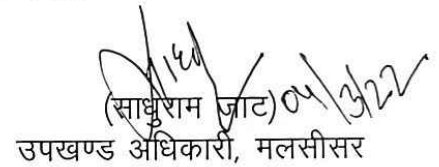 (साधुराम जाट) 04/3/22
उपखण्ड अधिकारी, मलसीसर